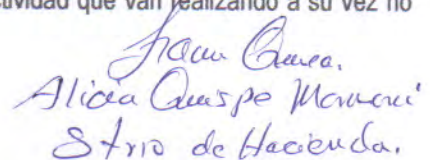 ctividad que van realizando a su vez no
Alicia Quispe Mamani
Strio de Hacienda.